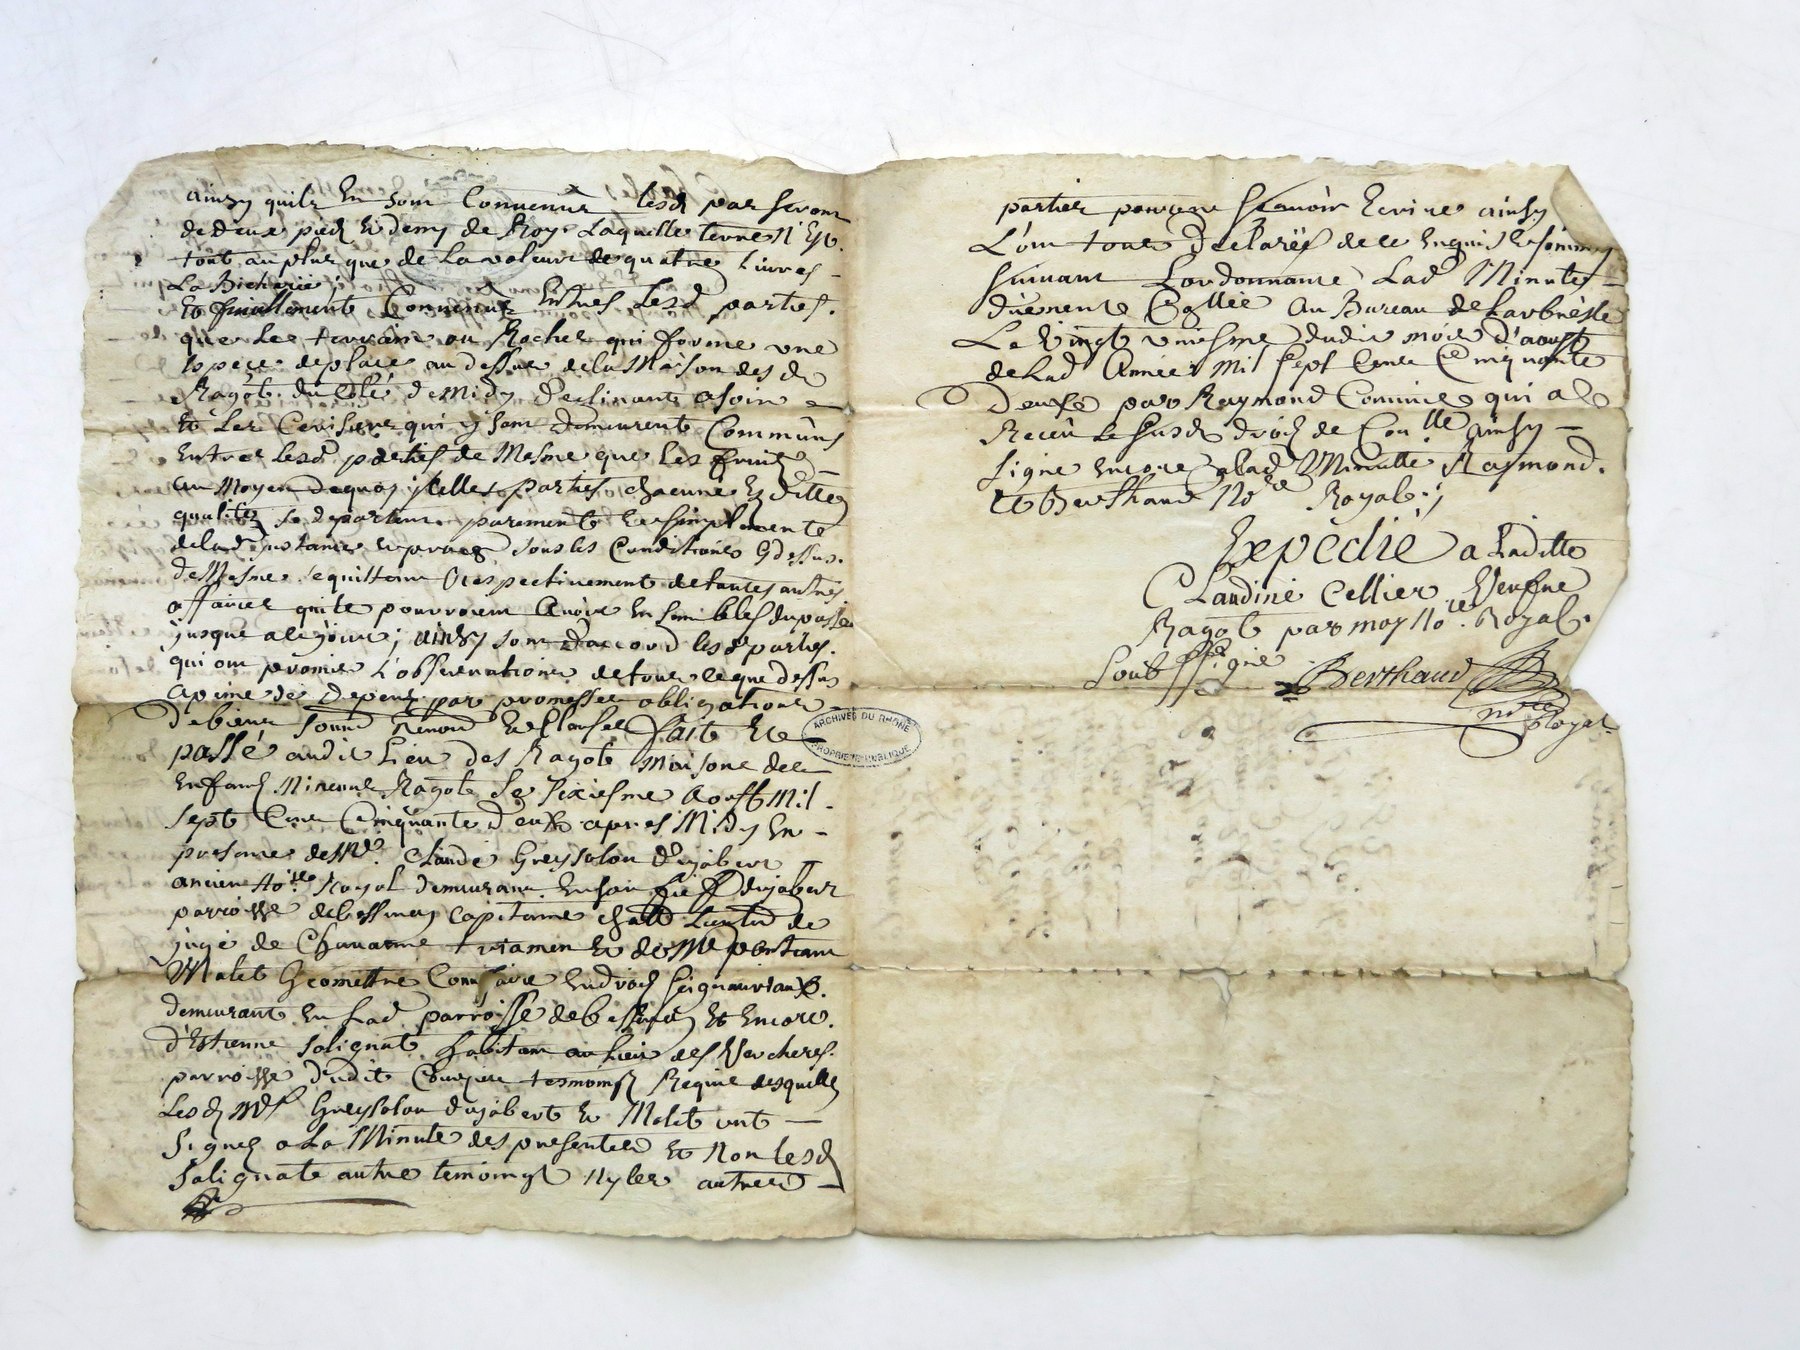 ainsy quils en sont Convenus lesd par seront
de deux pieds et demy de Roy Laquelle terre n'est
tout au plus que de la valeur de quatre Livres
La Bicherée
Et finallement Convenus Entres lesd parties.
que les terrain ou Rocher qui forme une
espece de place au dessus de la Maison desd
Ragôt du Côté de Midy declinant a soir
et les Cerisiers qui y sont demeurent Communs
Entres lesd parties de Mesme que les fruits
au moyen dequoy parties chacune Esdittes
qualités se departent purement et simplement
de lad instance et procès sous les Conditions Cydessus.
de Mesme se quittent respectivement de toutes autres
affaires quils pourroient avoir Ensembles du passé
jusque a ce jour; ainsy sont d'accord lesd parties.
qui ont promis L'observations de tout ce que dessus
a peine de depens par promesses obligations
de biens soumis Renond et Clauses fait et
passé audit Lieu des Ragôts Maisons des
Enfans Mineurs Ragôt Le sixiesme Aoust Mil
sept Cent Cinquante deux apres Midy En
presence de Me. Claude Greysolon Dujabert
ancien Nore Royal demeurant En son fieff dujabert
parroisse de bessenay Capitaine Lieutd de
juge de Chavanne et de Me
Malet Geomettre Comissaire Endroits seigneuriaux.
demeurant En Lad parroisse de bessenay Et Encore.
d'Estienne Solignat habitant au Lieu des Vercheres.
parroisse dudit Courzieu tesmoins Requis desquels
Lesd Mes Greysolon dujabert et Malet ont
Signez a La Minute des presentes Et Non Lesd
Solignat autre temoins Ny les autres
parties pour ne sçavoir Ecrire ainsy
L'ont tous declarés de ce Enquis et sommés
suivant Lordonnance Lad Minutte
duement Collée Au Bureau de Larbresle
Le Vingt uniesme dudit mois d'aoust
de Lad Année Mil sept Cent Cinquante
deux par Raymond Commis qui a
Receu Le susd droits de Conlle ainsy
signé encore a lad Minutte Raymond.
et Berthaud Nore Royal.
Expedié a Laditte
Claudine Cellier Veufve
Ragôt par moy Nore Royal.
Soubssigné
Berthaud
nre Royal
ARCHIVES DU RHÔNE
PROPRIÉTÉ PUBLIQUE